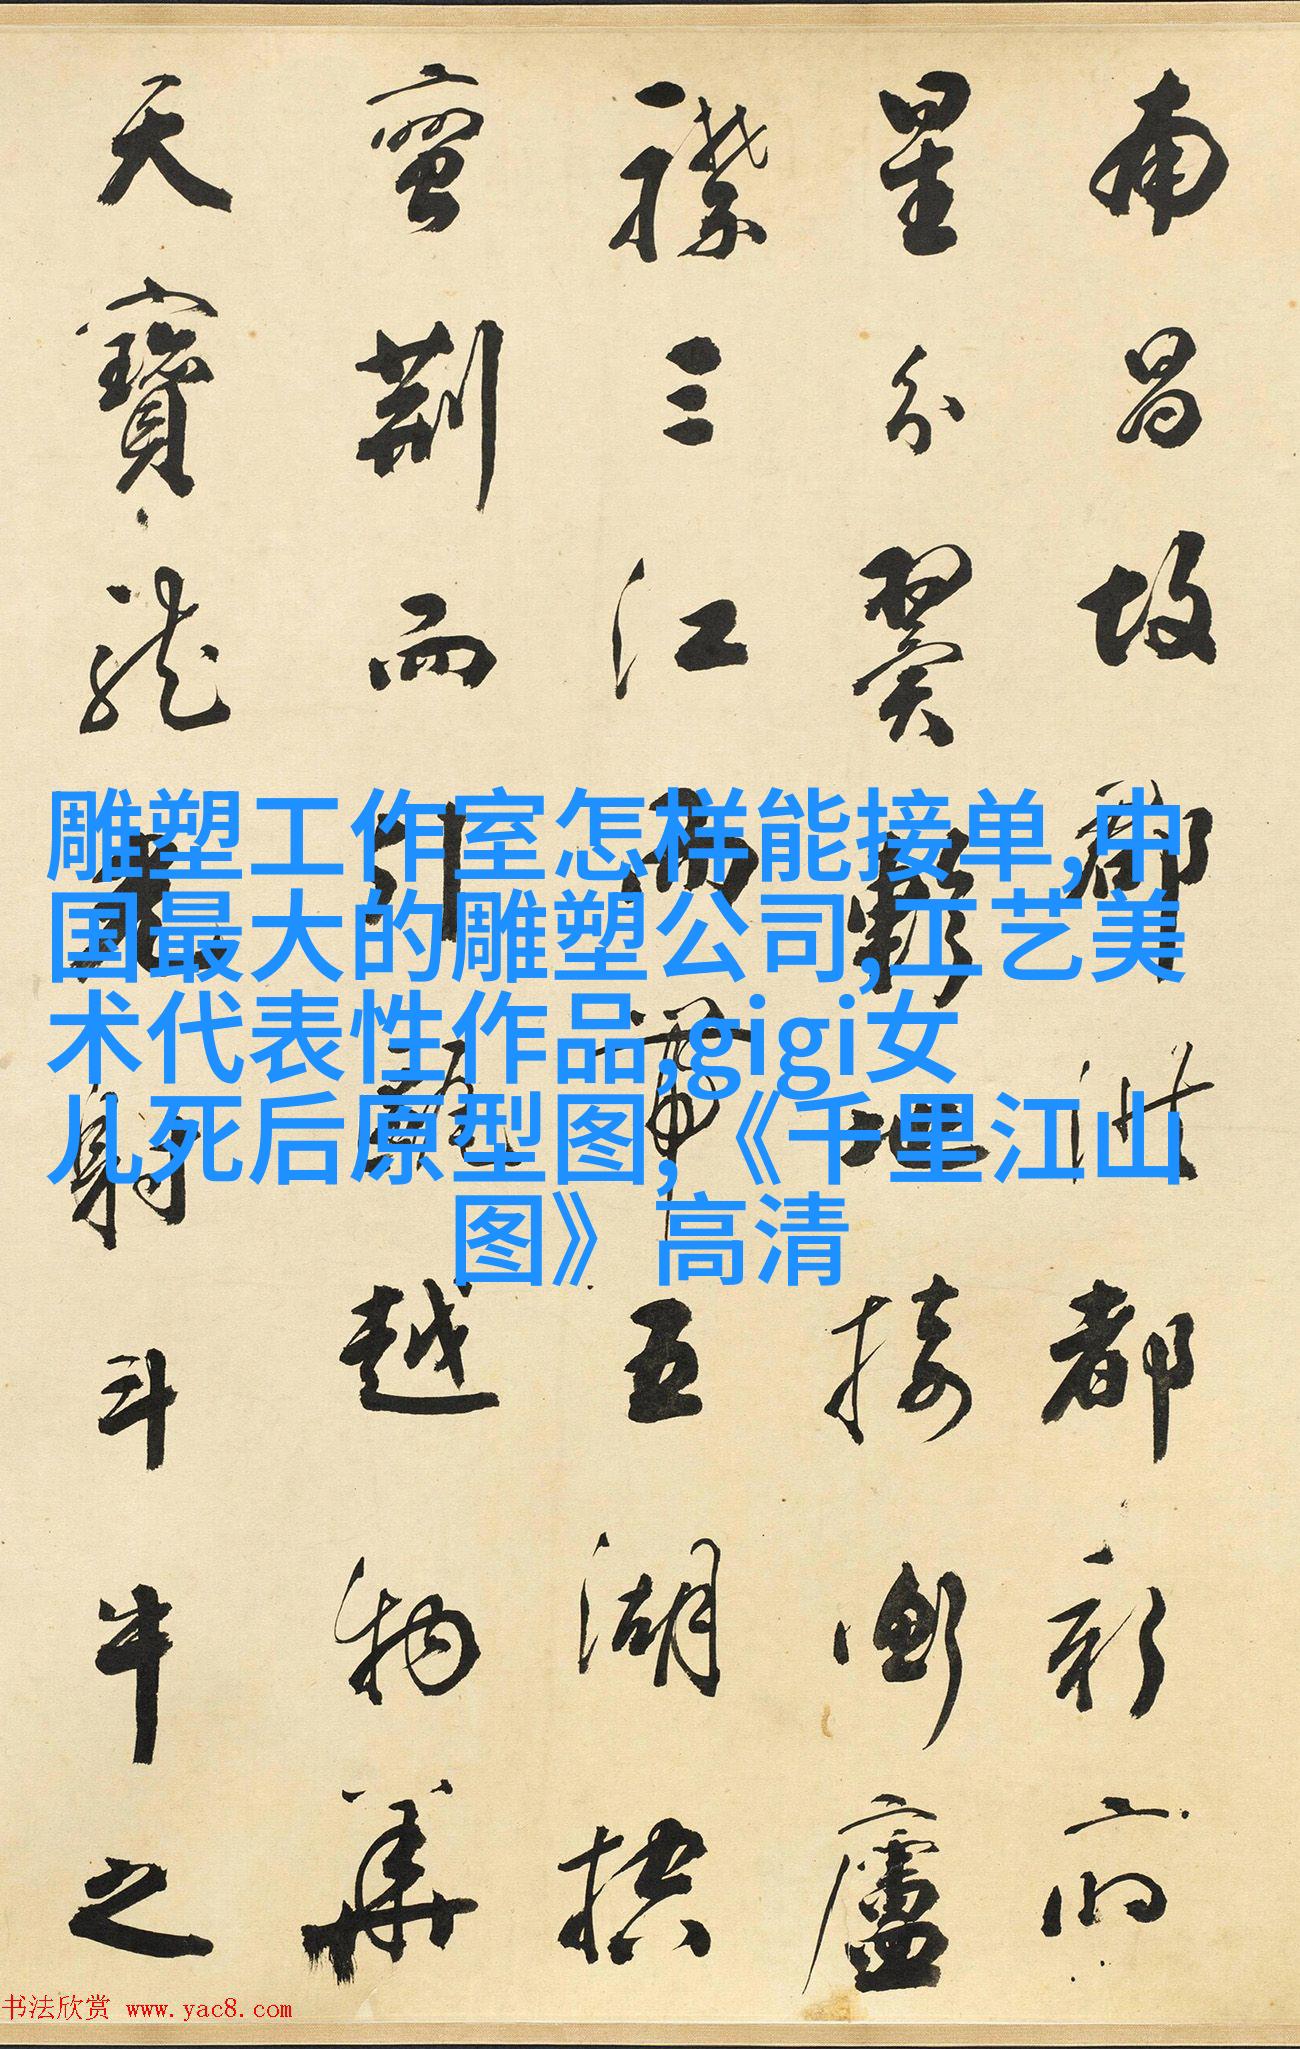 南昌故郡洪都新府
星分翼軫地接衡廬
襟三江而帶五湖控
蠻荊而引甌越物華
天寶龍光射斗牛之
雕塑工作室怎样能接单,中
国最大的雕塑公司,工艺美
术代表性作品,gigi女
儿死后原型图,《千里江山
图》高清
书法欣赏 www.yac8.com